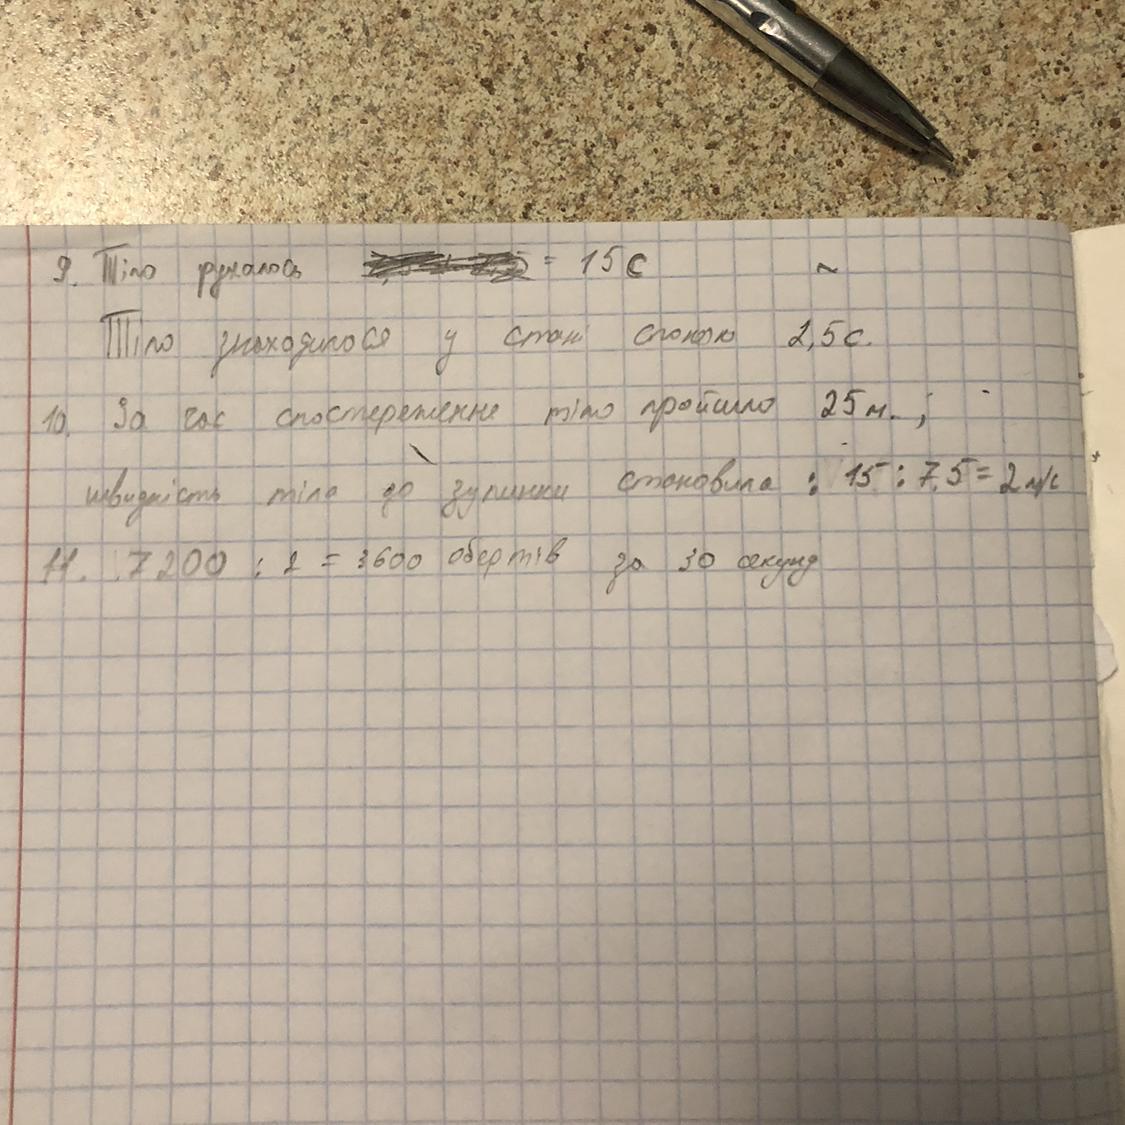 9. Тіло рухалось = 15 с
Тіло знаходилося у стані спокою 2,5 с.
10. За час спостереження тіло пройшло 25 м. ;
швидкість тіла до зупинки становила : 15 : 7,5 = 2 м/с
11. 7200 : 2 = 3600 обертів за 30 секунд